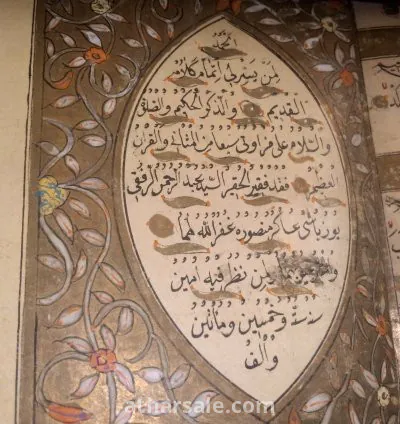 الحمد
لمن يسر لي اتمام كلامه
القديم والذكر الحكيم والصلاة
والسلام على من اوتى سبعا من المثاني والقران
العظيم فقد فقير الحقير السيد عبد الرحمن الرفقي
يوزباشى عساكر منصوره غفر الله لهما
ولمن نظر فيه امين
سنة ستة وخمسين ومأتين
والف
atharsale.com